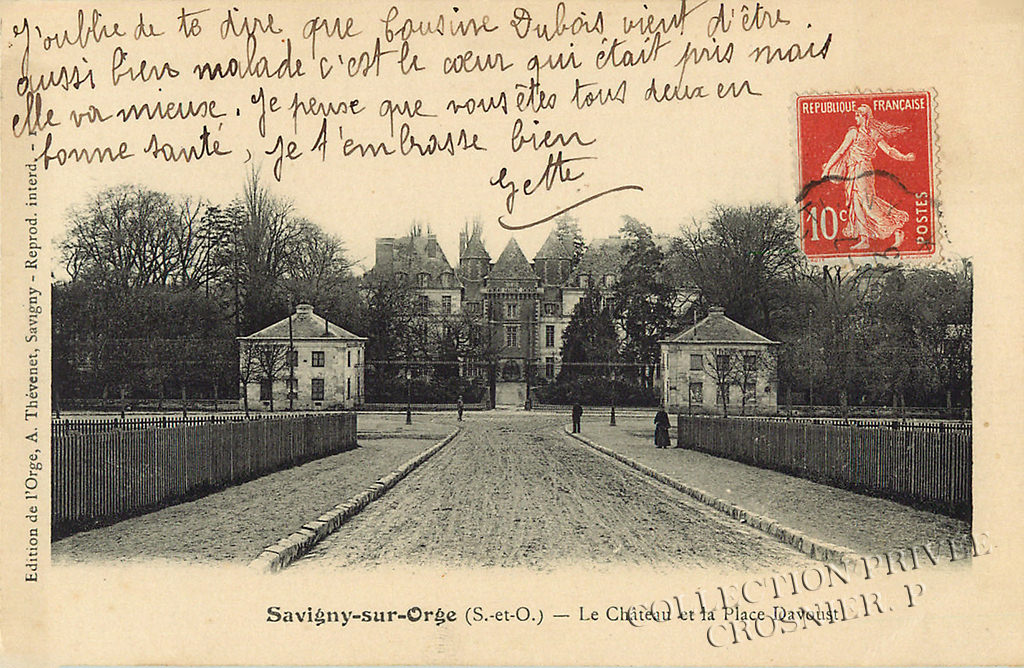 J'oublie de te dire que Cousine Dubois vient d'être
aussi bien malade c'est le cœur qui était pris mais
elle va mieux. Je pense que vous êtes tous deux en
bonne santé, je t'embrasse bien
Gette
REPUBLIQUE FRANÇAISE
10c
POSTES
Edition de l'Orge, A. Thévenet, Savigny - Reprod. interd. -
Savigny-sur-Orge (S.-et-O.) — Le Château et la Place Davoust
COLLECTION PRIVÉE
CROSNIER. P